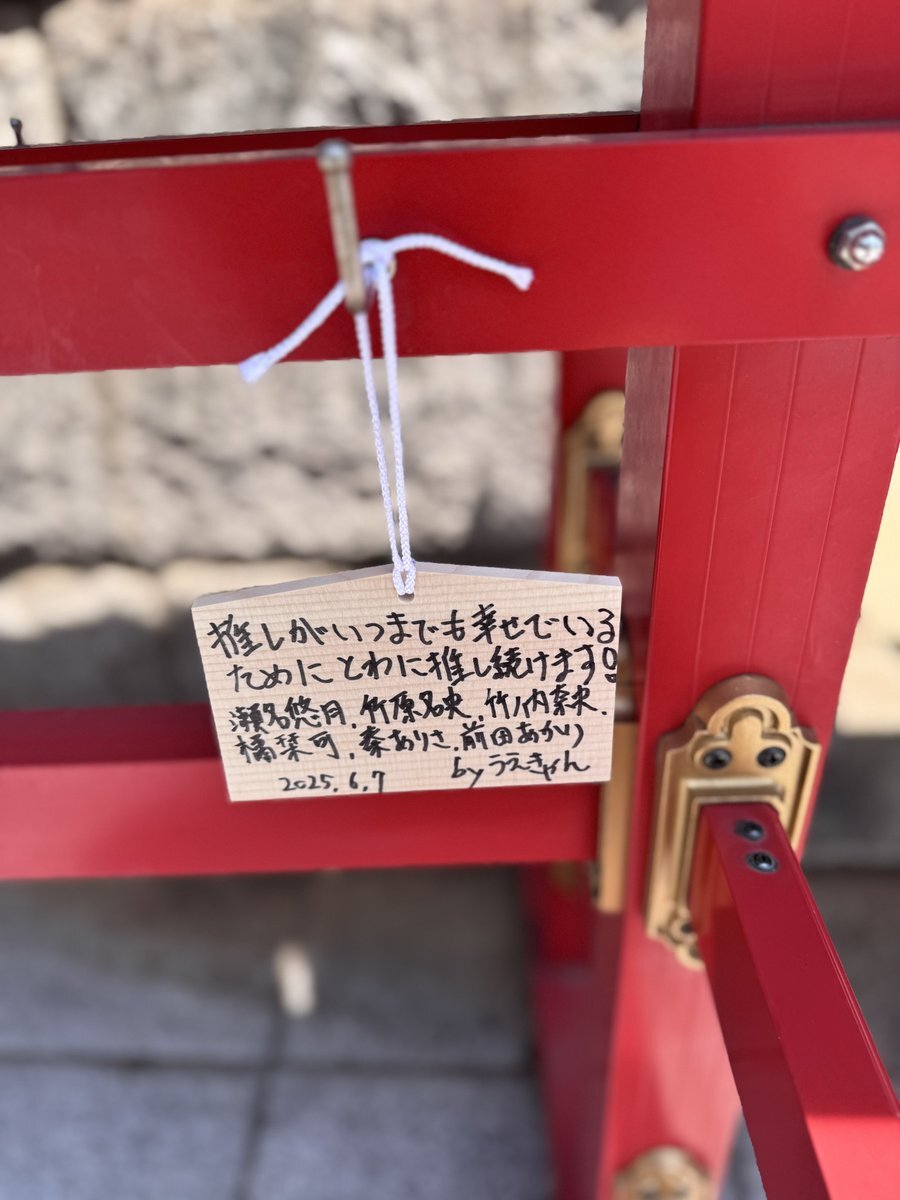 推しがいつまでも幸せでいる
ためにとわに推し続けます!!
瀬名悠月,竹原名央,竹ノ内奈央,
橘栞可,秦ありさ,前田あかり
2025.6.7 by うえきゃん